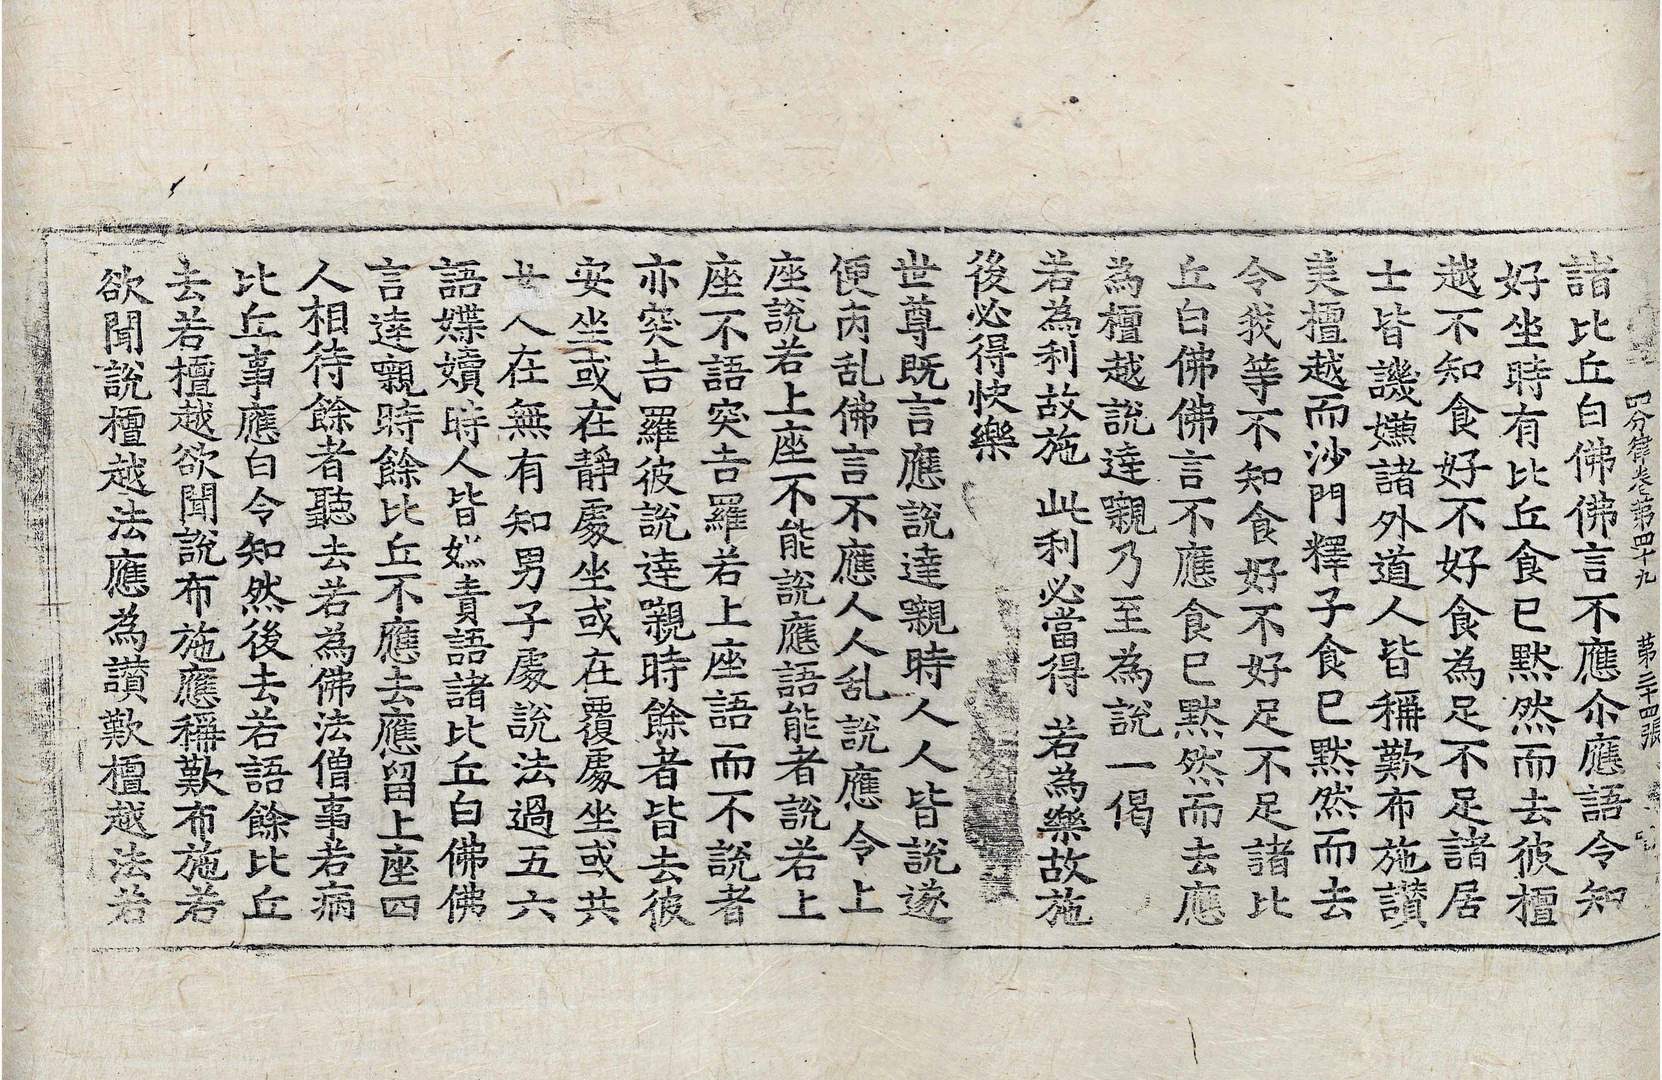 四分律卷第四十九　第三十四張
諸比丘白佛佛言不應尒應語令知
好坐時有比丘食已默然而去彼檀
越不知食好不好食為足不足諸居
士皆譏嫌諸外道人皆稱歎布施讃
美檀越而沙門釋子食已默然而去
令我等不知食好不好足不足諸比
丘白佛佛言不應食已默然而去應
為檀越說達嚫乃至為說一偈
若為利故施　此利必當得　若為樂故施
後必得快樂
世尊既言應說達嚫時人人皆說遂
便丙乱佛言不應人人乱說應令上
座說若上座不能說應語能者說若上
座不語突吉羅若上座語而不說者
亦突吉羅彼說達嚫時餘者皆去彼
安坐或在靜處坐或在覆處坐或共
女人在無有知男子處說法過五六
語媟嬻時人皆嫌責語諸比丘白佛佛
言達嚫時餘比丘不應去應留上座四
人相待餘者聽去若為佛法僧事若病
比丘事應白令知然後去若語餘比丘
去若檀越欲聞說布施應稱歎布施若
欲聞說檀越法應為讃歎檀越法若